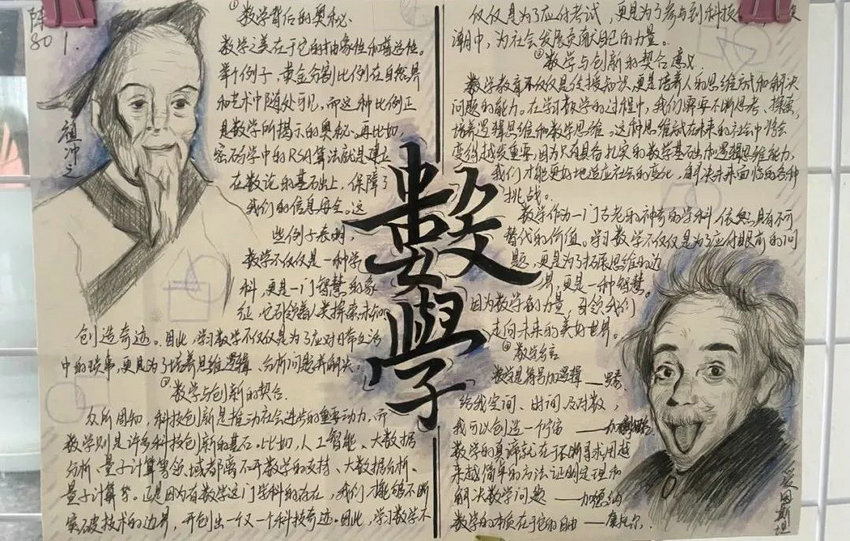 801.
祖冲之
①数学背后的奥秘
数学之美在于它的抽象性和普适性。
举个例子，黄金分割比例在自然界
和艺术中随处可见，而这种比例正
是数学所揭示的奥秘。再比如，
密码学中的RSA算法就是建立
在数论的基础上，保障了
我们的信息安全。这
些例子表明，
数学不仅仅是一种学
科，更是一门智慧的象
征，它引领着人类探索未知
创造奇迹。因此，学习数学不仅仅是为了应对日常生活
中的琐事，更是为了培养思维逻辑、分析问题并解决
②数学与创新的契合.
众所周知，科技创新是推动社会进步的重要动力，而
数学则是许多科技创新的基石。比如，人工智能、大数据
分析、量子计算等领域都离不开数学的支持、大数据分析、
量子计算等。正是因为有数学这门学科的存在，我们才能够不断
突破技术的边界，开创出一个又一个科技奇迹。因此，学习数学不
數學
仅仅是为了应付考试，更是为了参与到科技
潮中，为社会发展贡献自己的力量。
③数学与创新的契合意义
数学教育不仅仅是传授知识，更是培养人的思维方式和解决
问题的能力。在学习数学的过程中，我们需要不断思考、探索，
培养逻辑思维和数学思维。这种思维方式在未来的社会中将会
变得越来越重要，因为只有具备扎实的数学基础和逻辑思维能力，
我们才能更好地适应社会的变化，解决未来面临的各种
挑战。
数学作为一门古老而神奇的学科，依然具有不可
替代的价值。学习数学不仅仅是为了应付眼前的问
题，更是为了拓展思维的边
界，更是一种智慧。
因为数学的力量，引领我们
走向未来的美好世界。
④数学名言
数学是符号加逻辑——罗素
给我空间、时间及对数，
我可以创造一个宇宙——伽利略
数学的真谛就在于不断寻求用越
来越简单的方法证明定理和
解决数学问题——加德纳
数学的本质在于它的自由——康托尔.
爱因斯坦